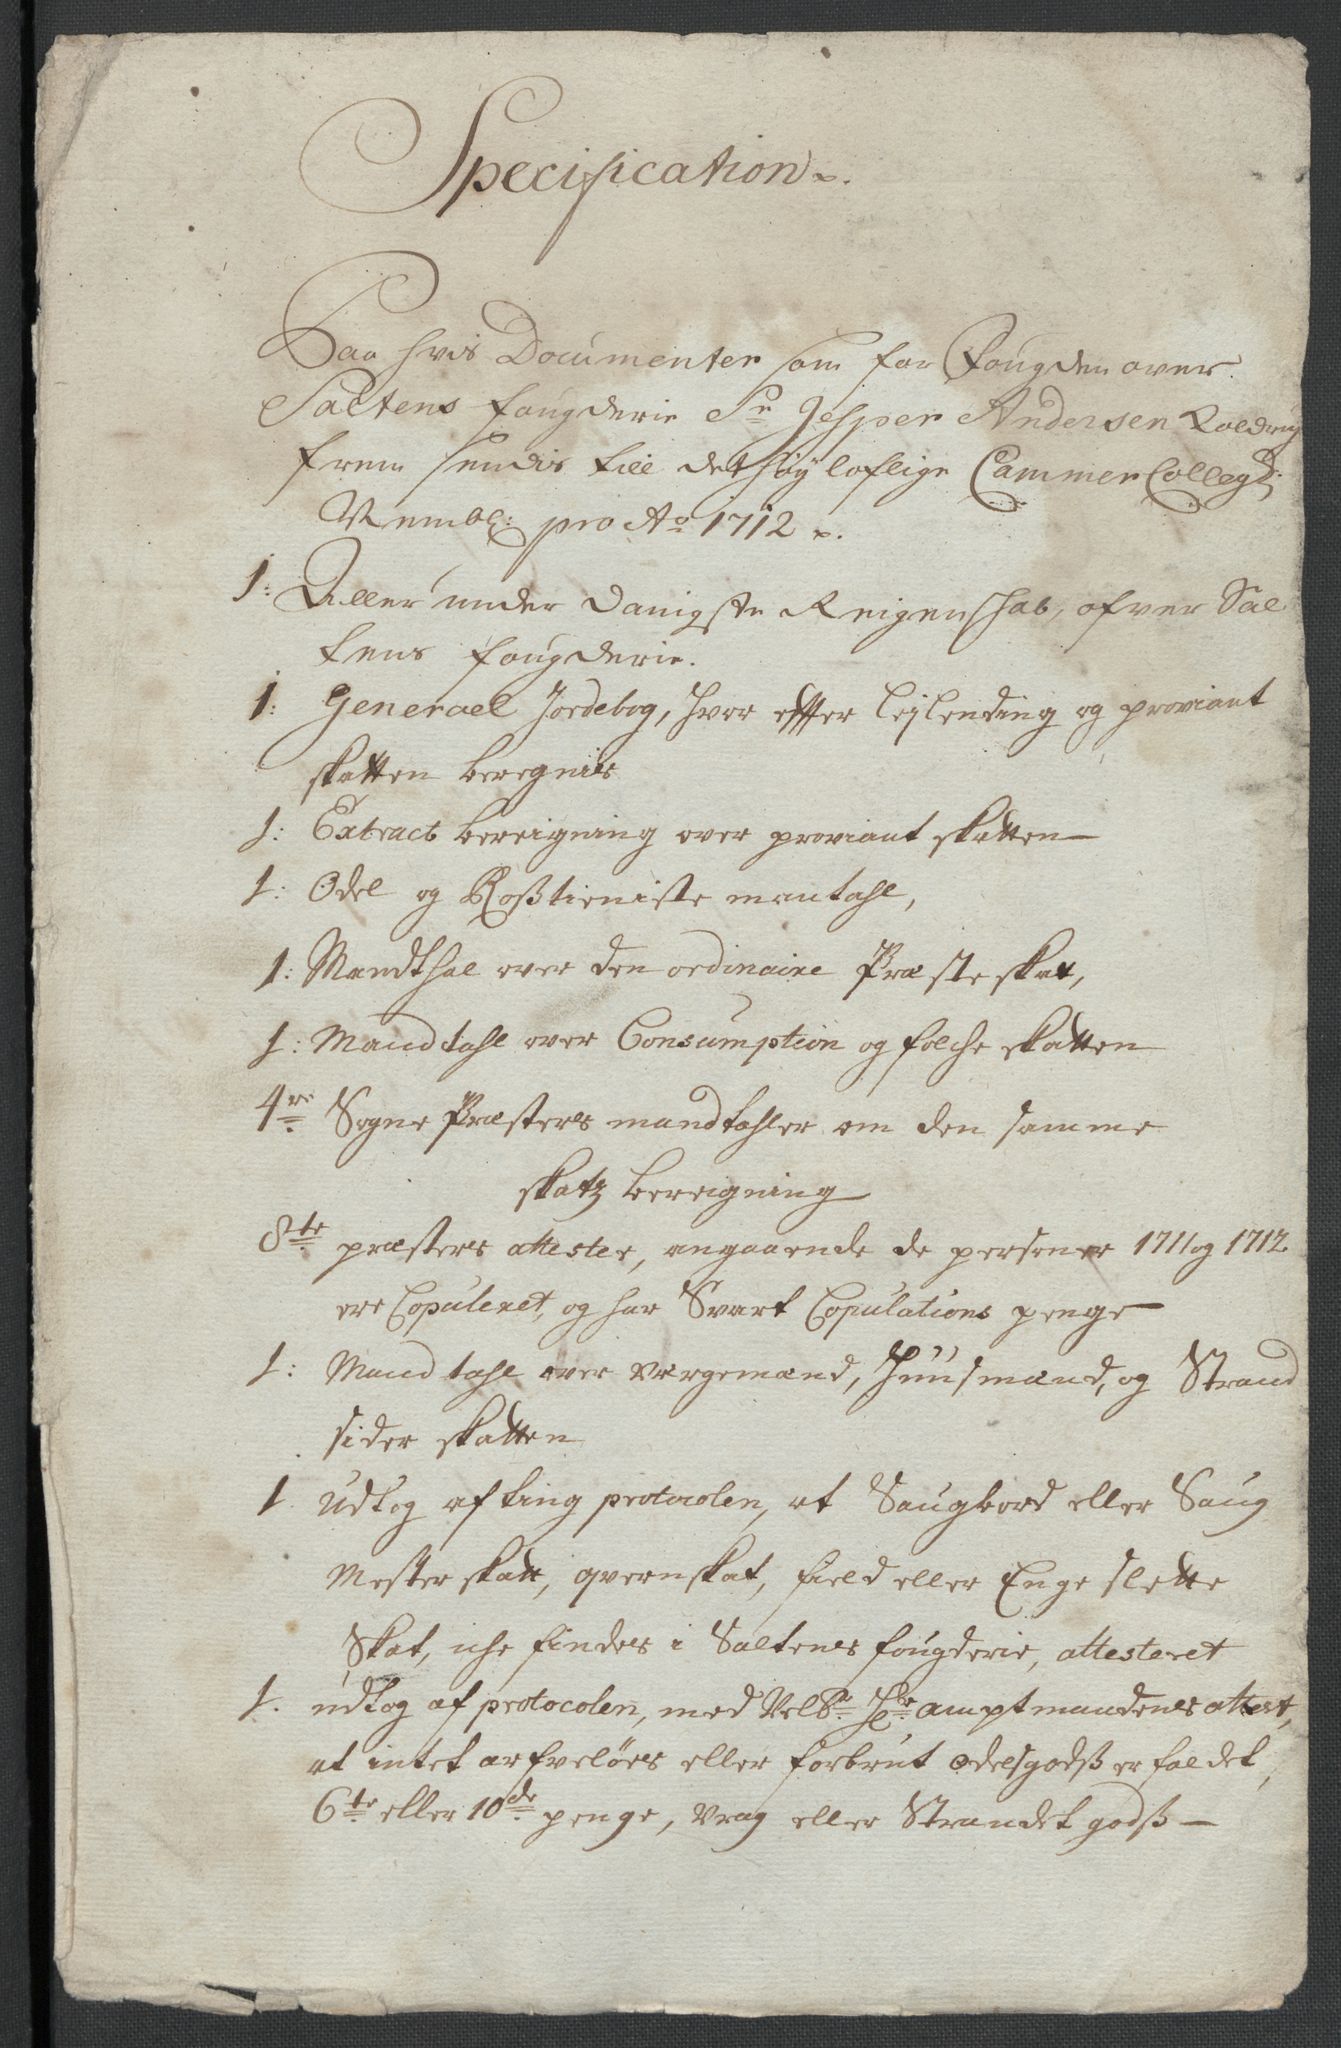 Specification.
Paa hvis Documenter som for Fougden over
Saltens fougderie Sr. Jesper Andersen
frem sendis till det høyloflige Cammer Collegs
pro Ao 1712.
1: Aller under Danigste Reigenschab, ofver Sal
tens fougderie.
1: Generael Jordebog, hvor effter leylending og proviant
skatten beregnis
1: Extract bereigning over proviant skatten
1: Odel og Roßtieniste mantahl,
1: Mandthal over den ordinaire Præste skat,
1: Mandtahl over Consumption og folche skatten
4re Sogne Præsters mandtahler om den samme
skatz bereigning
8te præsters attester, angaaende de personer 1711 og 1712
ere Copuleret, og har Svart Copulations penge
1: Mandtahl overværgemænd, Huusmænd, og Strand
sider skatten
1 Udtog af ting protocolen, at Saugbord eller Saug
Mester skatt, qvernskat, field eller Enge slette
Skat, iche findes i Saltens fougderie, attesteret
1. udtog af protocolen, med Velbr. Hr. amptmandens attest,
at intet arfveløes eller forbrut odelsgodß er faldet,
6te eller 10de penge, vrag eller Strandet godß